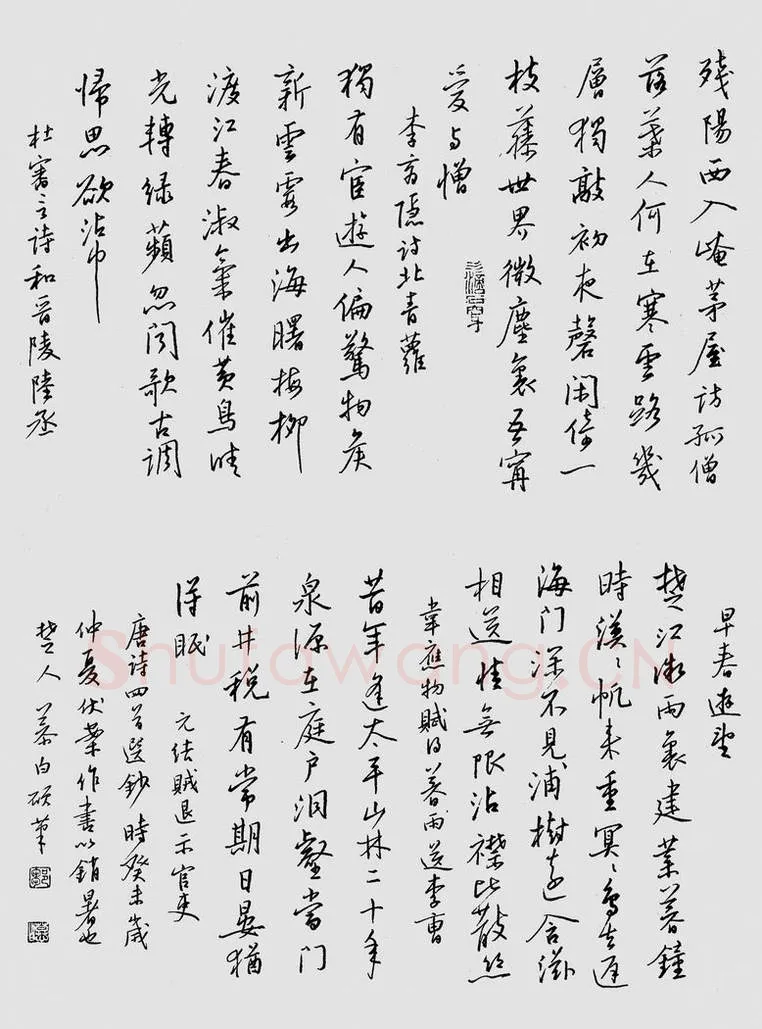 殘陽西入崦茅屋訪孤僧
落葉人何在寒雲路幾
層獨敲初夜磬閑倚一
枝藤世界微塵裏吾寧
愛与憎
李商隱詩北青蘿
獨有宦遊人偏驚物候
新雲霞出海曙梅柳
渡江春淑氣催黃鳥晴
光轉綠蘋忽聞歌古調
歸思欲沾巾
杜審言詩和晉陵陸丞
早春遊望
楚江微雨裏建業暮鐘
時漠〻帆来重冥〻鳥去遲
海门深不見浦樹遠含滋
相送情無限沾襟比散絲
韋應物賦得暮雨送李曹
昔年逢太平山林二十年
泉源在庭户洞壑當门
前井稅有常期日晏猶
得眠 元結賊退示官吏
唐詩四首選鈔 時癸未歲
仲夏伏案作書以銷暑也
楚人慕白碩筆
Shufawang.CN